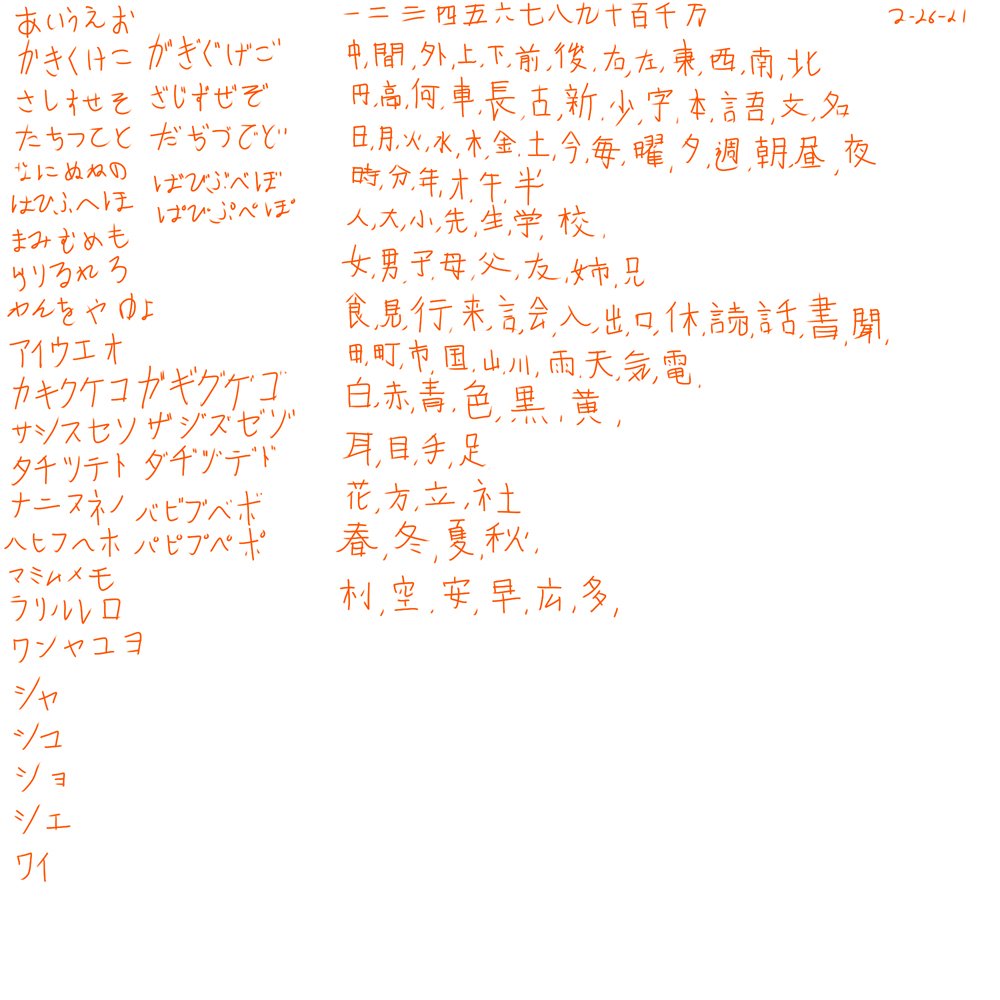 あいうえお
かきくけこ がぎぐげご
さしすせそ ざじずぜぞ
たちつてと だぢづでど
なにぬねの
はひふへほ ばびぶべぼ
ぱぴぷぺぽ
まみむめも
らりるれろ
わんをやゆよ
アイウエオ
カキクケコ ガギグゲゴ
サシスセソ ザジズゼゾ
タチツテト ダヂヅデド
ナニヌネノ バビブベボ
ハヒフヘホ パピプペポ
マミムメモ
ラリルレロ
ワンヤユヨ
シャ
シュ
ショ
シェ
ワイ
一二三四五六七八九十百千万
2-26-21
中,間,外,上,下,前,後,右,左,東,西,南,北
円,高,何,車,長,古,新,少,字,本,言語,文,名
日,月,火,水,木,金,土,今,毎,曜,夕,週,朝,昼,夜
時,分,年,才,午,半
人,大,小,先,生,学,校,
女,男,子,母,父,友,姉,兄
食,見,行,来,言,会,入,出,口,休,読,話,書,聞,
田,町,市,国,山,川,雨,天,気,電,
白,赤,青,色,黒,黄,
耳,目,手,足
花,方,立,社
春,冬,夏,秋,
村,空,安,早,広,多,